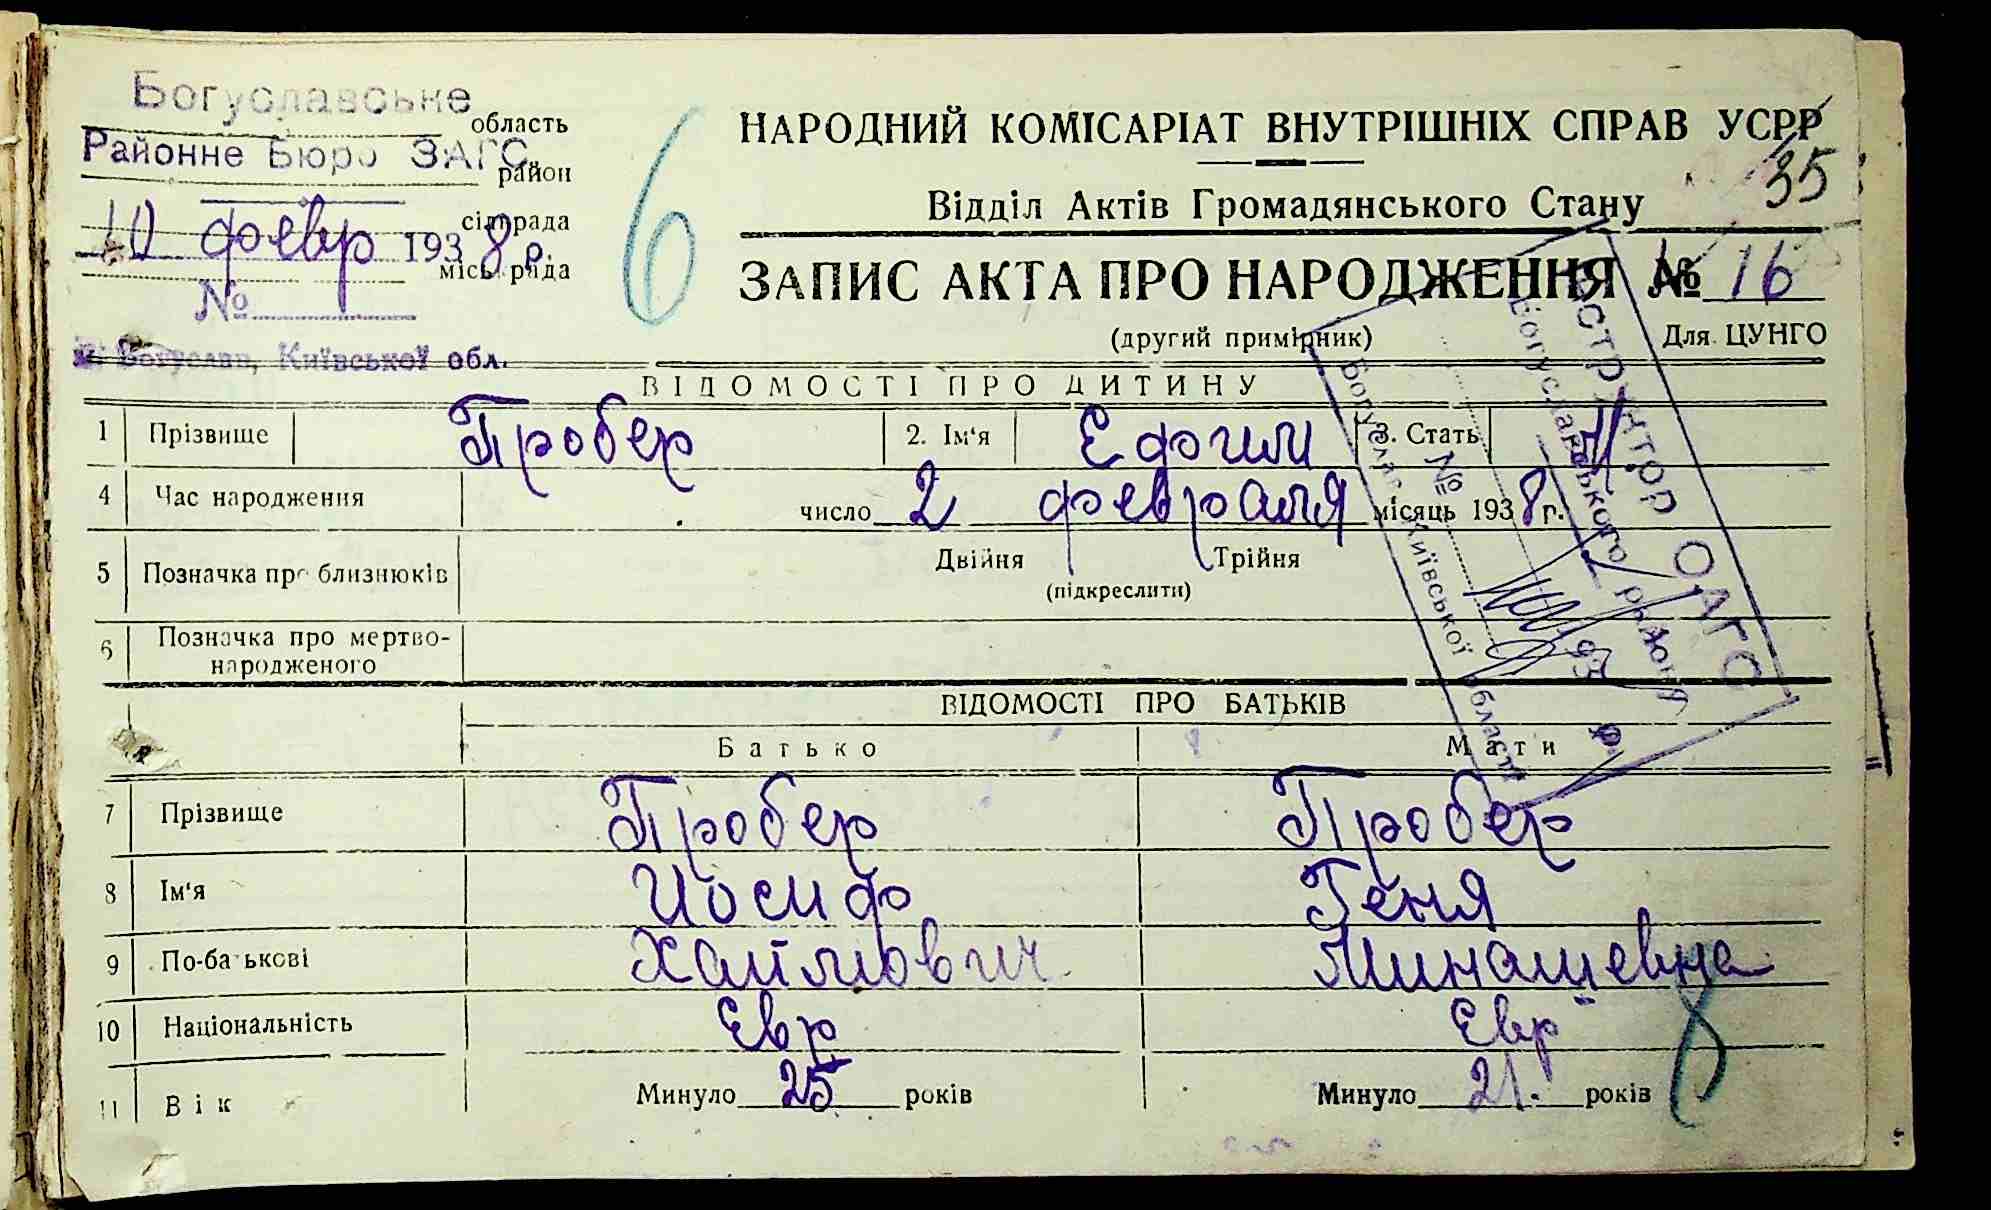 Богуславське
область
Районне Бюро ЗАГС
район
сільрада
10 февр 1938 р.
міськрада
№
м. Богуслав, Київської обл.
6
НАРОДНИЙ КОМІСАРІАТ ВНУТРІШНІХ СПРАВ УСРР
35
Відділ Актів Громадянського Стану
ЗАПИС АКТА ПРО НАРОДЖЕННЯ № 16
(другий примірник) Для ЦУНГО
ВІДОМОСТІ ПРО ДИТИНУ
1 Прізвище Пробер 2. Ім'я Ефим 3. Стать М.
4 Час народження число 2 февраля місяць 1938 г.
5 Позначка про близнюків Двійня Трійня
(підкреслити)
6 Позначка про мертво-
народженого
ОАГС
Богуславського району
№
193 р.
Богуслав Київської області
ВІДОМОСТІ ПРО БАТЬКІВ
Батько Мати
7 Прізвище Пробер Пробер
8 Ім'я Иосиф Геня
9 По-батькові Хаймович Минашевна
10 Національність Евр Евр
8
11 Вік Минуло 25 років Минуло 21. років